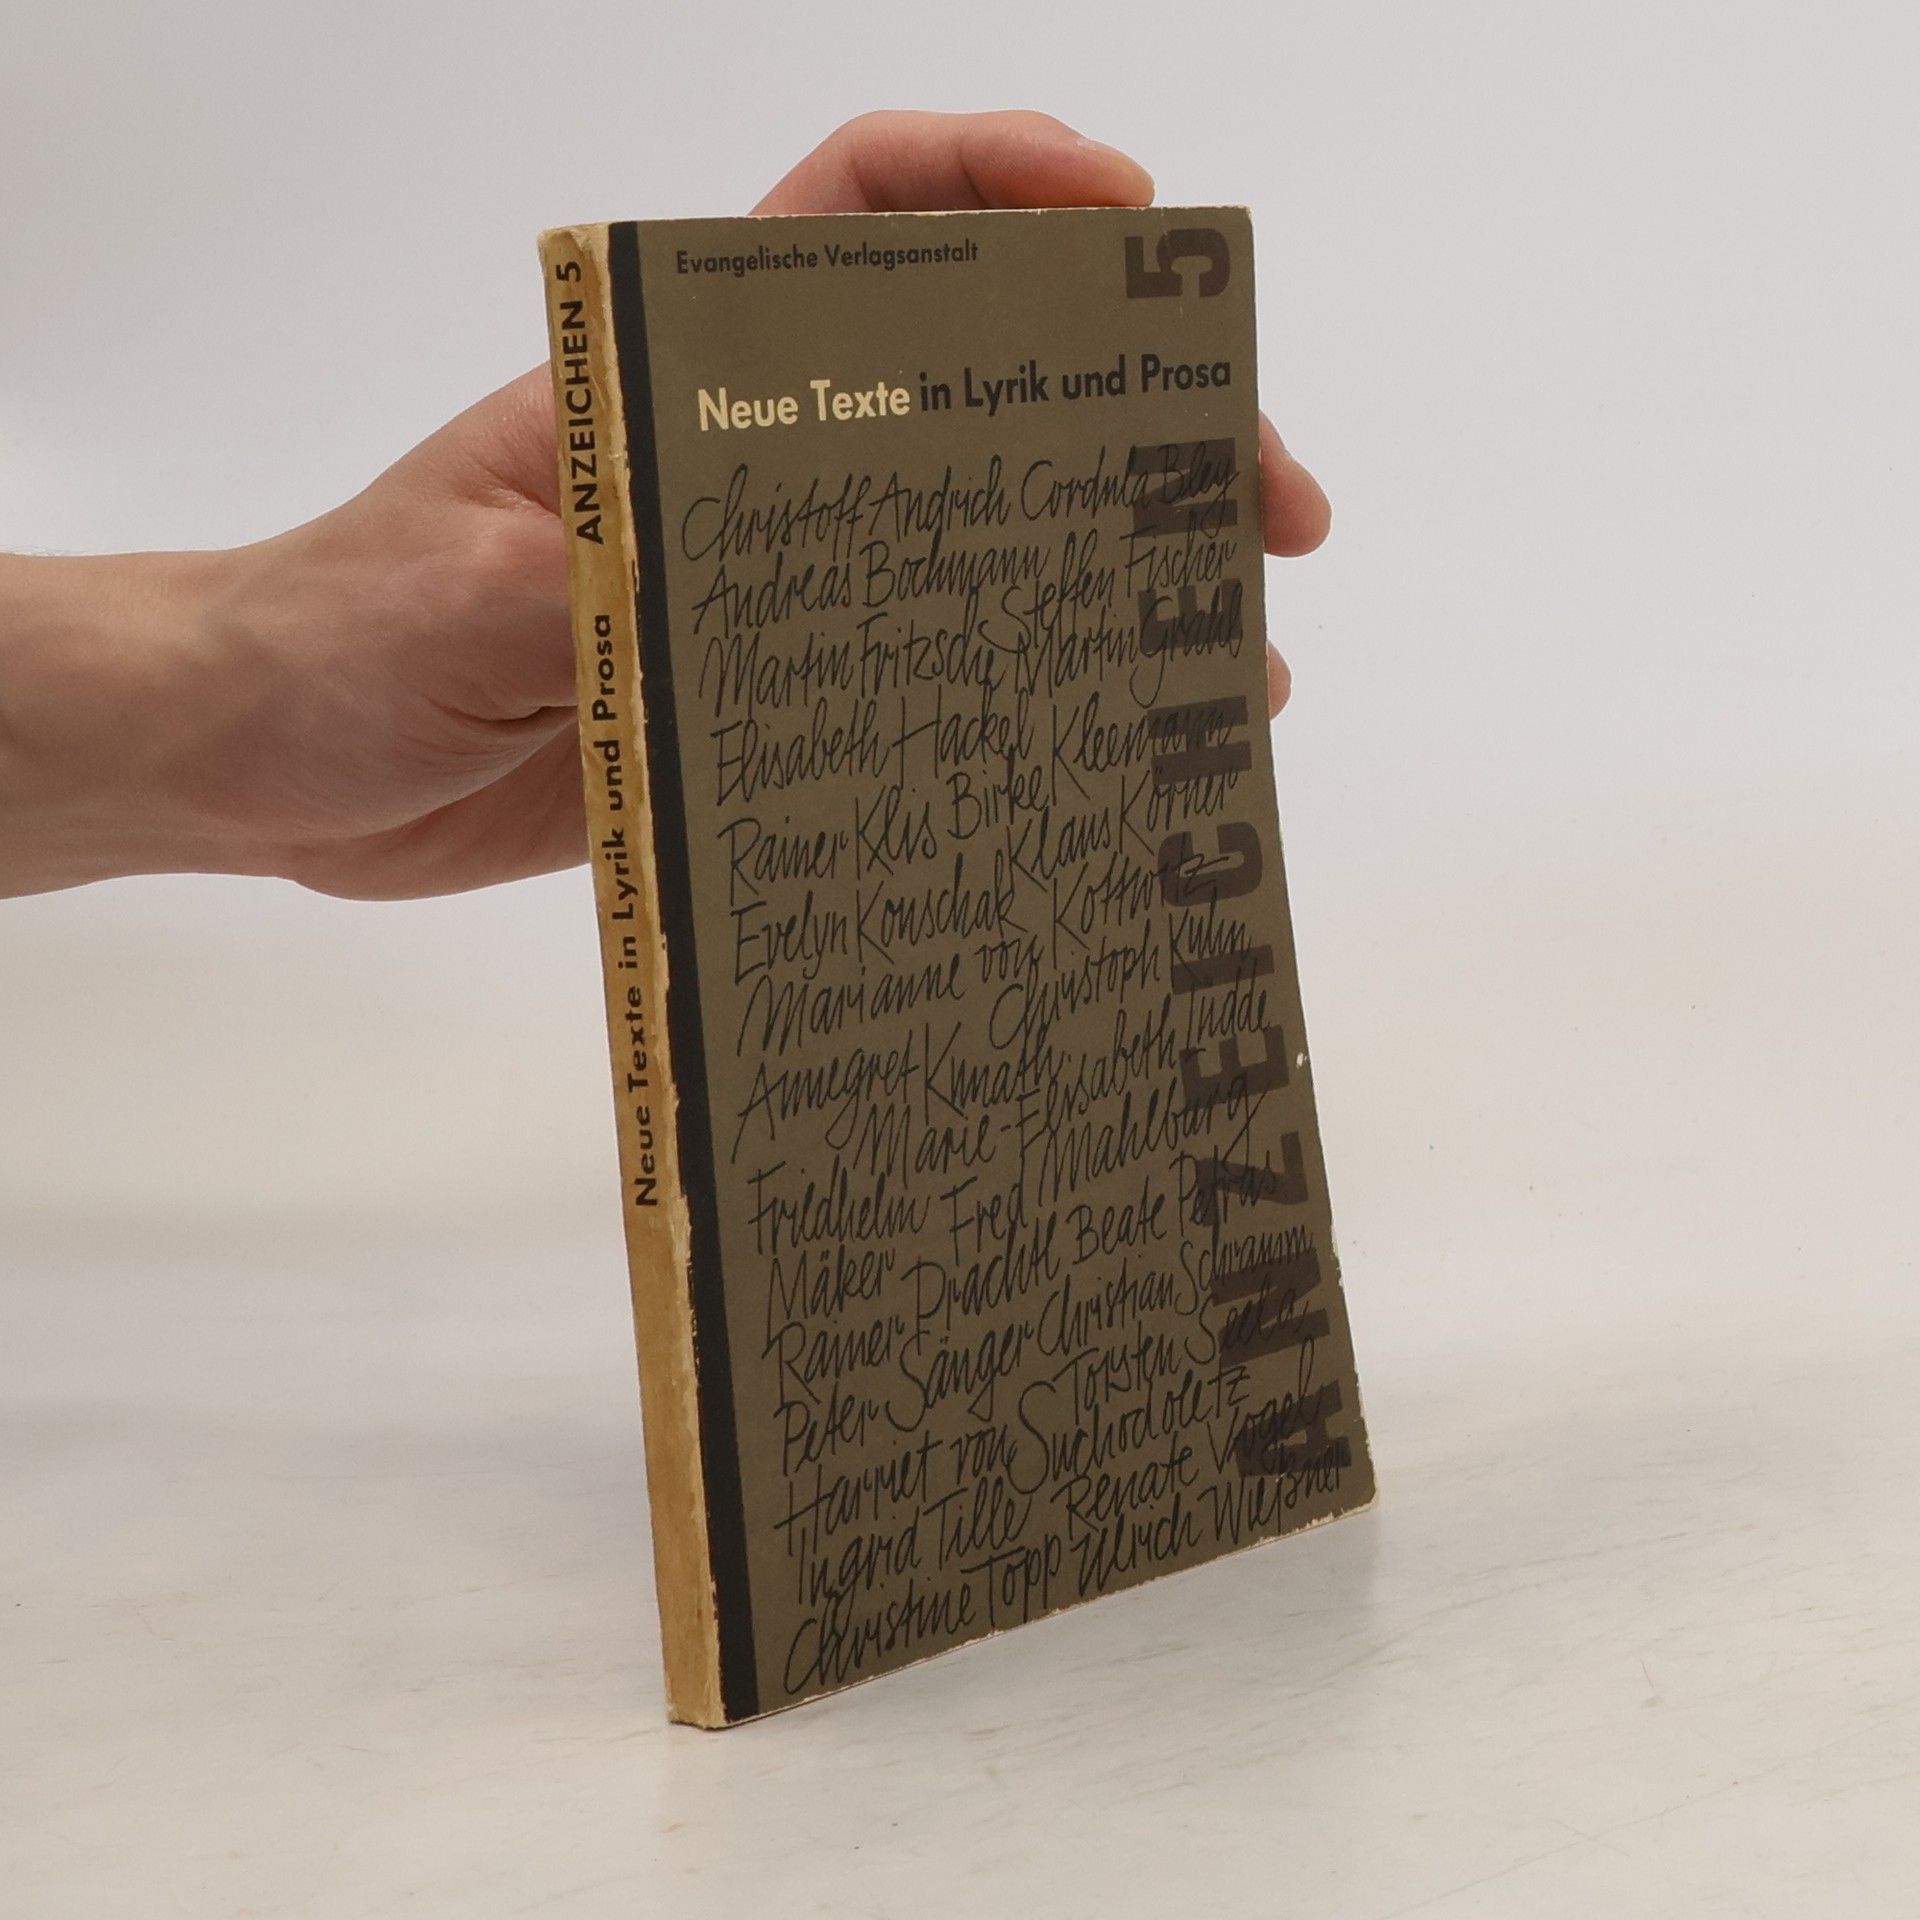 ANZEICHEN 5
Neue Texte in Lyrik und Prosa
Evangelische Verlagsanstalt
Neue Texte in Lyrik und Prosa
Christoff Andrich Cordula Bley
Andreas Bochmann Steffen Fischer
Martin Fritzsche Martin Grahl
Elisabeth Hackel Kleemann
Rainer Klis Birke Klaus Körner
Evelyn Konschak Kottwitz
Marianne von Christoph Kuhn
Annegret Knnath Marie-Elisabeth Lüdde
Friedhelm Fred Mahlburg
Mäker Prachtl Beate Petras
Rainer Christian Schramm
Peter Sänger Torsten Seela
Harriet von Suchodoletz
Ingrid Tille Renate Vogel
Christine Topp Ulrich Wießner
ANZEICHEN 5